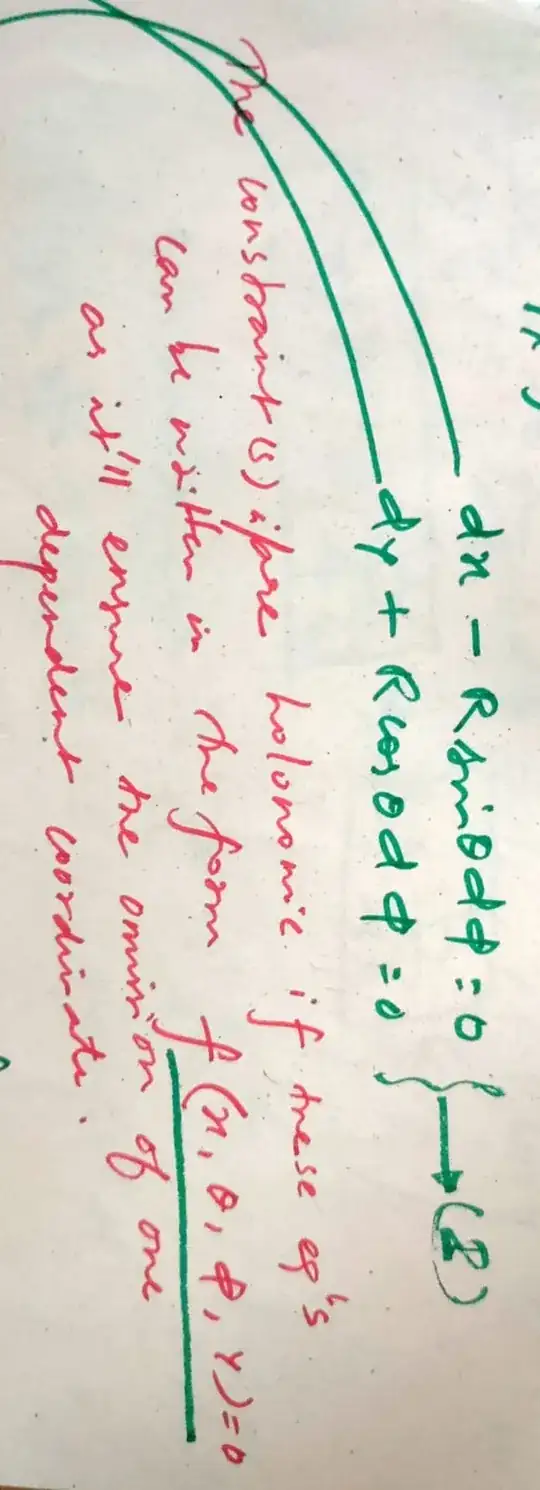 dx - R sinθ dφ = 0
dy + R cosθ dφ = 0 } → (2)
The constraint(s) is/are holonomic if these eq's
can be written in the form f(x, θ, φ, y) = 0
as it'll ensure the omission of one
dependent coordinate.